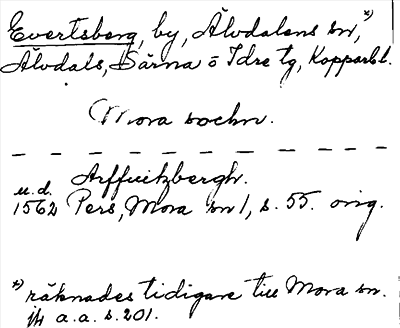 Evertsberg, by, Älvdalens sn,*)
Älvdals, Särna o Idre tg, Kopparb. l.
Mora sochn.
Arffuitzbergh.
u.d.
1562 Pers, Mora sn 1, s. 55. orig.
*) räknades tidigare till Mora sn.
jfr a.a. s. 201.